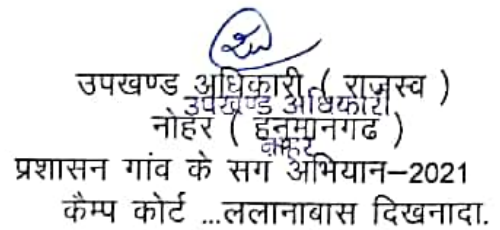 उपखण्ड अधिकारी ( राजस्व )
उपखण्ड अधिकारी
नोहर ( हनुमानगढ )
प्रशासन गांव के सग अभियान–2021
कैम्प कोर्ट ...ललानाबास दिखनादा.